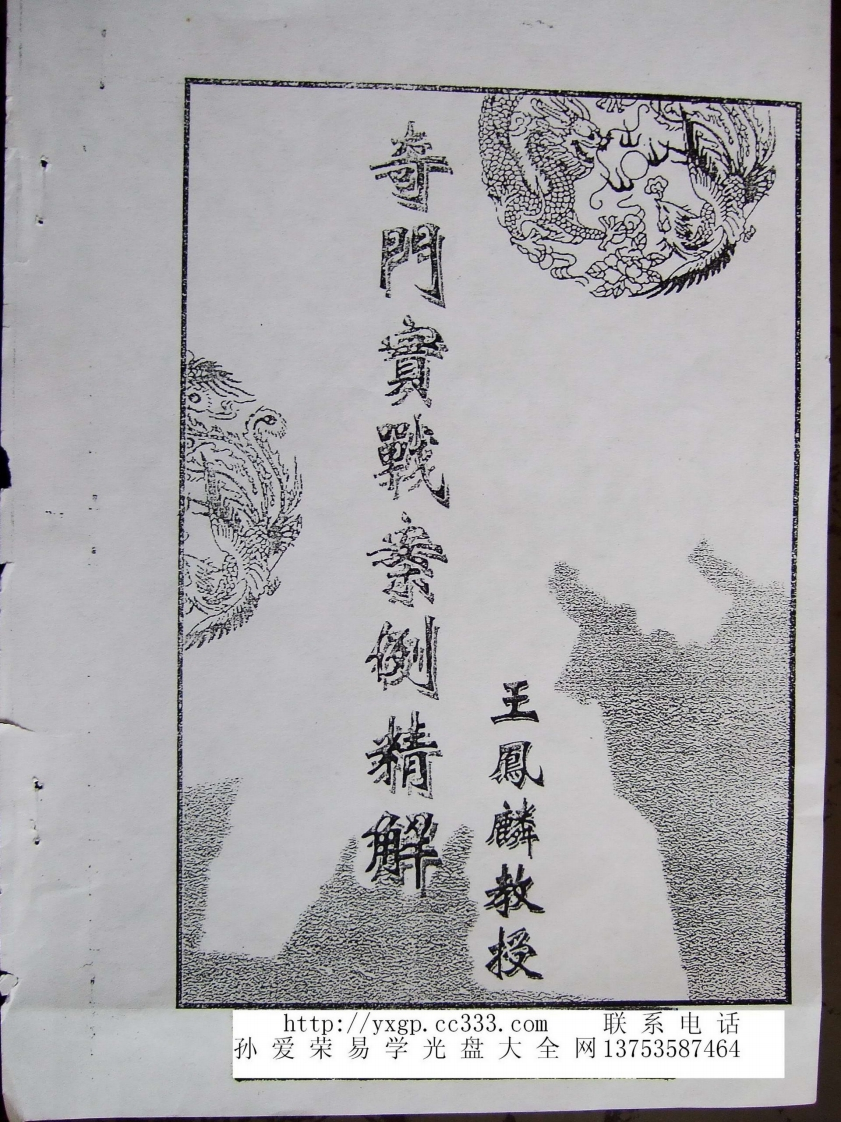 奇門實戰案例精解
王鳳麟教授
http://yxgp.cc333.com 联系电话
孙爱荣易学光盘大全网13753587464